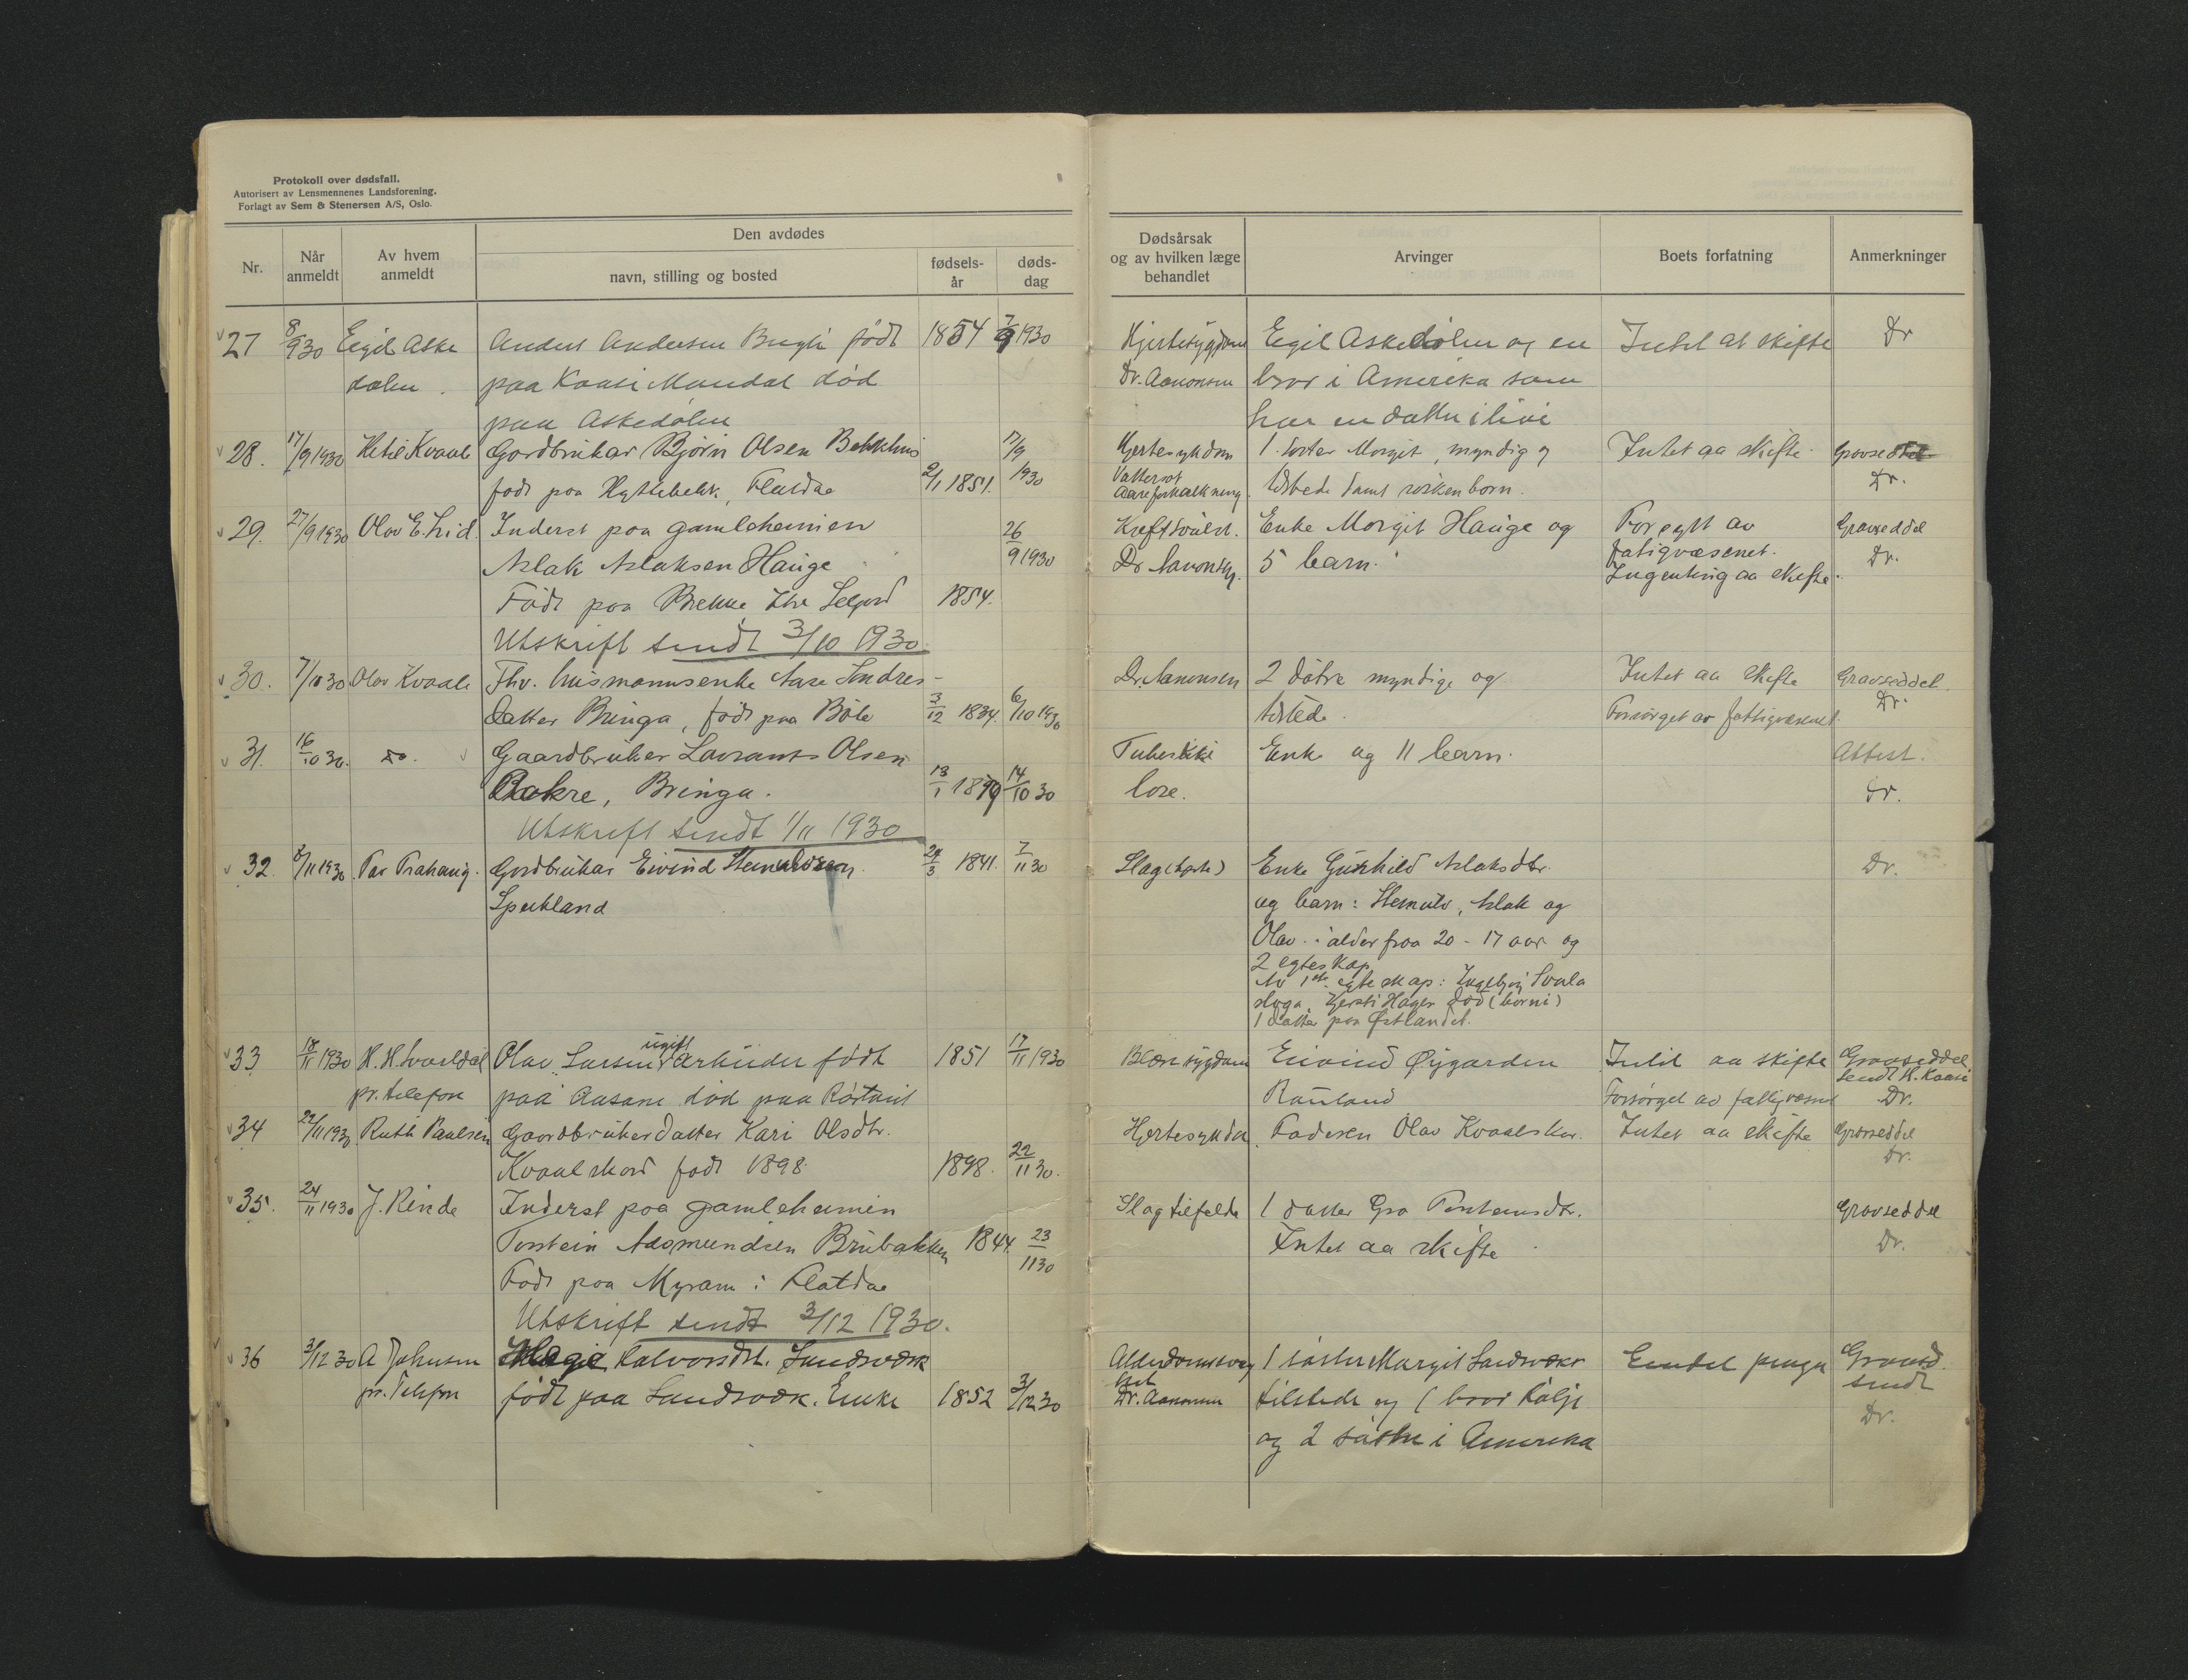 Protokoll over dødsfall.
Autorisert av Lensmennenes Landsforening.
Forlagt av Sem & Stenersen A/S, Oslo.
Nr.
Når anmeldt
Av hvem anmeldt
Den avdødes
navn, stilling og bosted
fødsels-år
døds-dag
Dødsårsak og av hvilken læge behandlet
Arvinger
Boets forfatning
Anmerkninger
27 8/9 30 Egil Aske Anders Andersen født 1854 7/9 1930 Hjertesygdom Egil Askedalen og en Intet at skifte Dr
dalen. paa Kaasi Mandal død Dr. Aanonsen bror i Amerika som
paa Askedalen har en datter i live
28. 17/9 1930 Ketil Kvaale Gardbrukar Bjørn Olsen Bekkhus 17/9 Hjertesykdom 1 søster Margit, myndig og Intet aa skifte Gravseddel
født paa Hyttebekk, Flatdal 2/1 1851. 1930 Vattersot tilstede samt søsken born. Dr.
Aareforkalkning
29. 27/9 1930 Olav E. Lid. Inderst paa gamleheimen 26 Kreftsvulst. Enke Margit Hauge og Forsynt av Gravseddel
Aslak Aslaksen Hauge 9 1930 Dr Aanonsen. 5 barn. fatigvæsenet. Dr.
Ingenting aa skifte.
Født paa Brekke Seljord 1854.
Utskrift sendt 3/10 1930.
30. 7/10 30 Olav Kvaale Fhv. husmannsenke Aase Sondres- Dr. Aanonsen 2 døtre myndige og Intet aa skifte Gravseddel.
datter Bringa, født paa Bøle 3/12 1834. 6/10 1930 tilstede. Forsørget av fattigvæsenet. Dr.
31. 16/10 30. do. Gaardbruker Lavrants Olsen Tuberku Enke og 11 barn. Attest.
Aakre, Bringa. 13/1 1879 14/10 30 lose. Dr.
Utskrift sendt 1/11 1930
32. 8/11 1930 Par Prahaug. Gardbrukar Eivind Steinulvsen 24/3 1841. 7/11 30 Slag Enke Gunhild Aslaksdtr. Dr.
Spekland og barn: Steinulv, Aslak og
Olav i alder fraa 20 - 17 aar og
2 egteskap
Av 1ste egteskap: Ingebjørg Svala
stoga, Kjersti Hagen død (borni)
1 datter paa Østlandet.
33 18/11 1930 H. H. Svartdal Olav Larsen ugift arbeider født 1851 17/11 1930 Blæresygdom Eivind Øygarden Intet aa skifte Gravseddel
sendt H. Kaasi
pr. telefon paa Aasane død paa Rørtveit Rauland Forsørget av fattigvæsenet Dr.
34 22/11 1930 Ruth Paulsen Gaardbrukerdatter Kari Olsdtr. Hjertesykdom Faderen Olav Kvaalskar. Intet aa skifte Gravseddel
Kvaalskard født 1898 1898. 22/11 30. Dr.
35. 24/11 1930 J. Rinde Inderst paa gamleheimen Slagtilfelde 1 datter Gro Torsteinsdtr. Gravseddel
Torstein Aasmundsen Brubakken 1844. 23/11 30 Intet aa skifte Dr.
Født paa Myran i Flatdal
Utskrift sendt 3/12 1930.
36 3/12 30 A Johnsen Halvorsdtr. Sundsvæsk 1 søster Margit Endel penger Gravsd.
sendt
pr. Telefon født paa Enke 1852 3/12 30 Dr. Aanonsen tilstede og 1 bror Dr.
og 2 søstre i Amerika